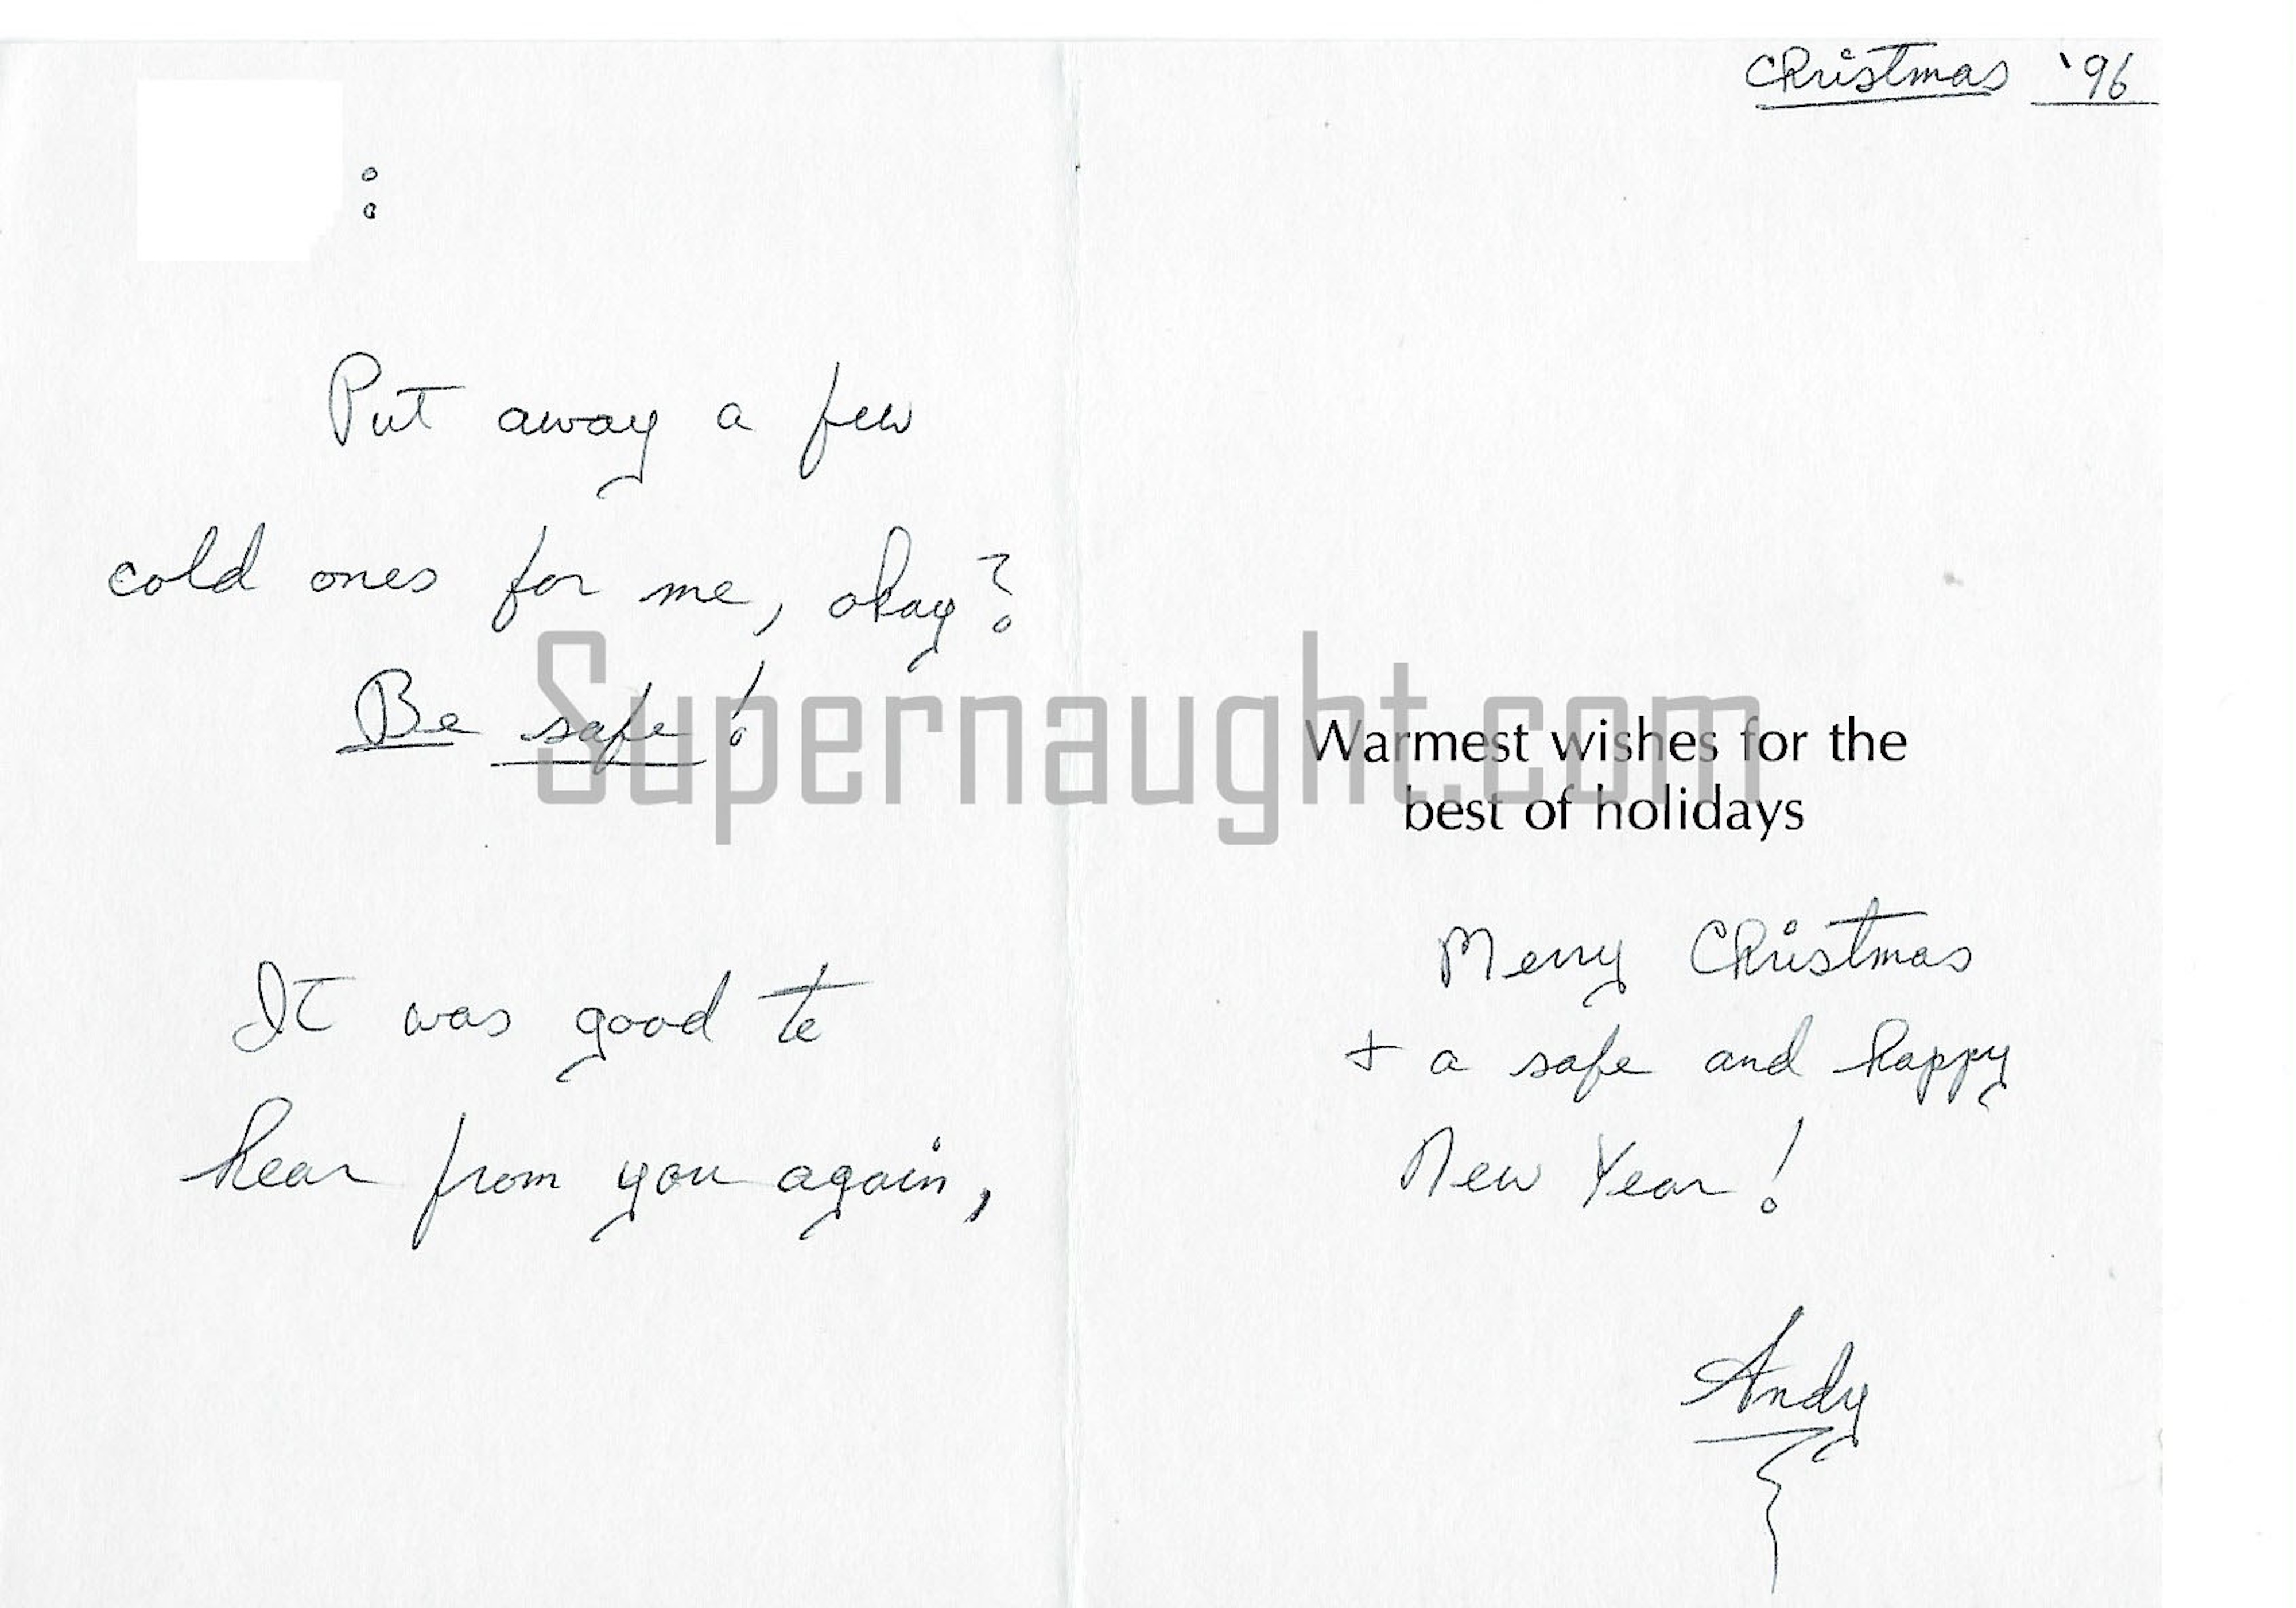 Christmas '96
:
Put away a few
cold ones for me, okay?
Be safe!
It was good to
hear from you again,
Supernaught.com
Warmest wishes for the
best of holidays
Merry Christmas
+ a safe and happy
New Year!
Andy